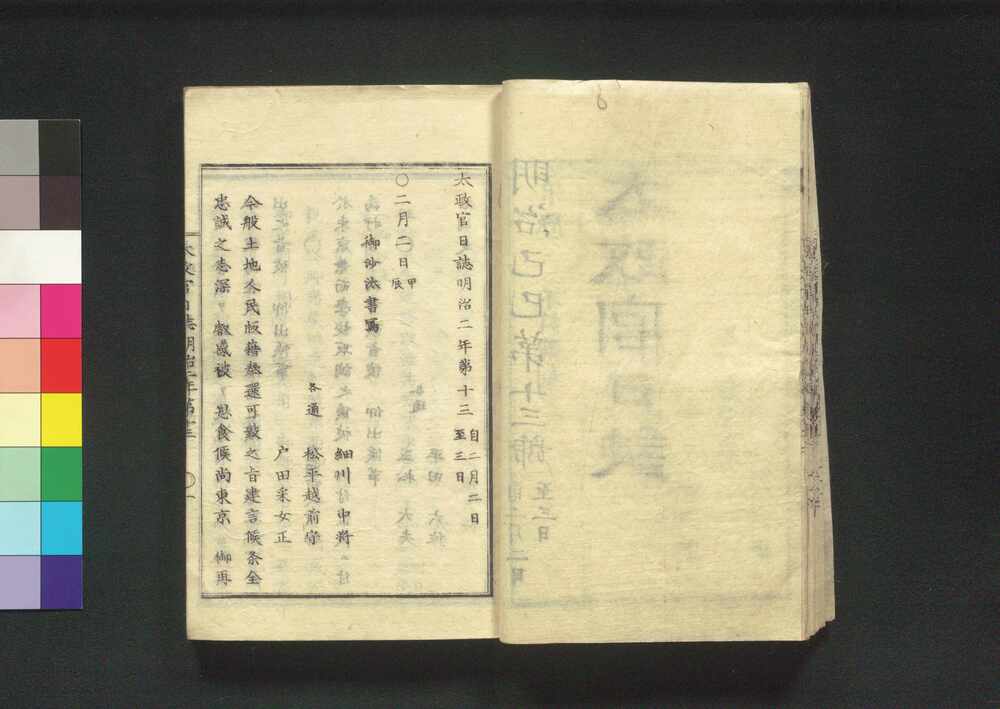 太政官日誌明治二年第十三 自二月二日
至三日
〇二月二日 甲辰
御沙汰書寫
細川中將
各通 松平越前守
戸田采女正
今般土地人民版籍奉還可致之旨建言候条全
忠誠之志深 叡感被 思食候尚東京 御再
太政官日誌明治二年第十三 〇一
明治己巳第十三
至三日